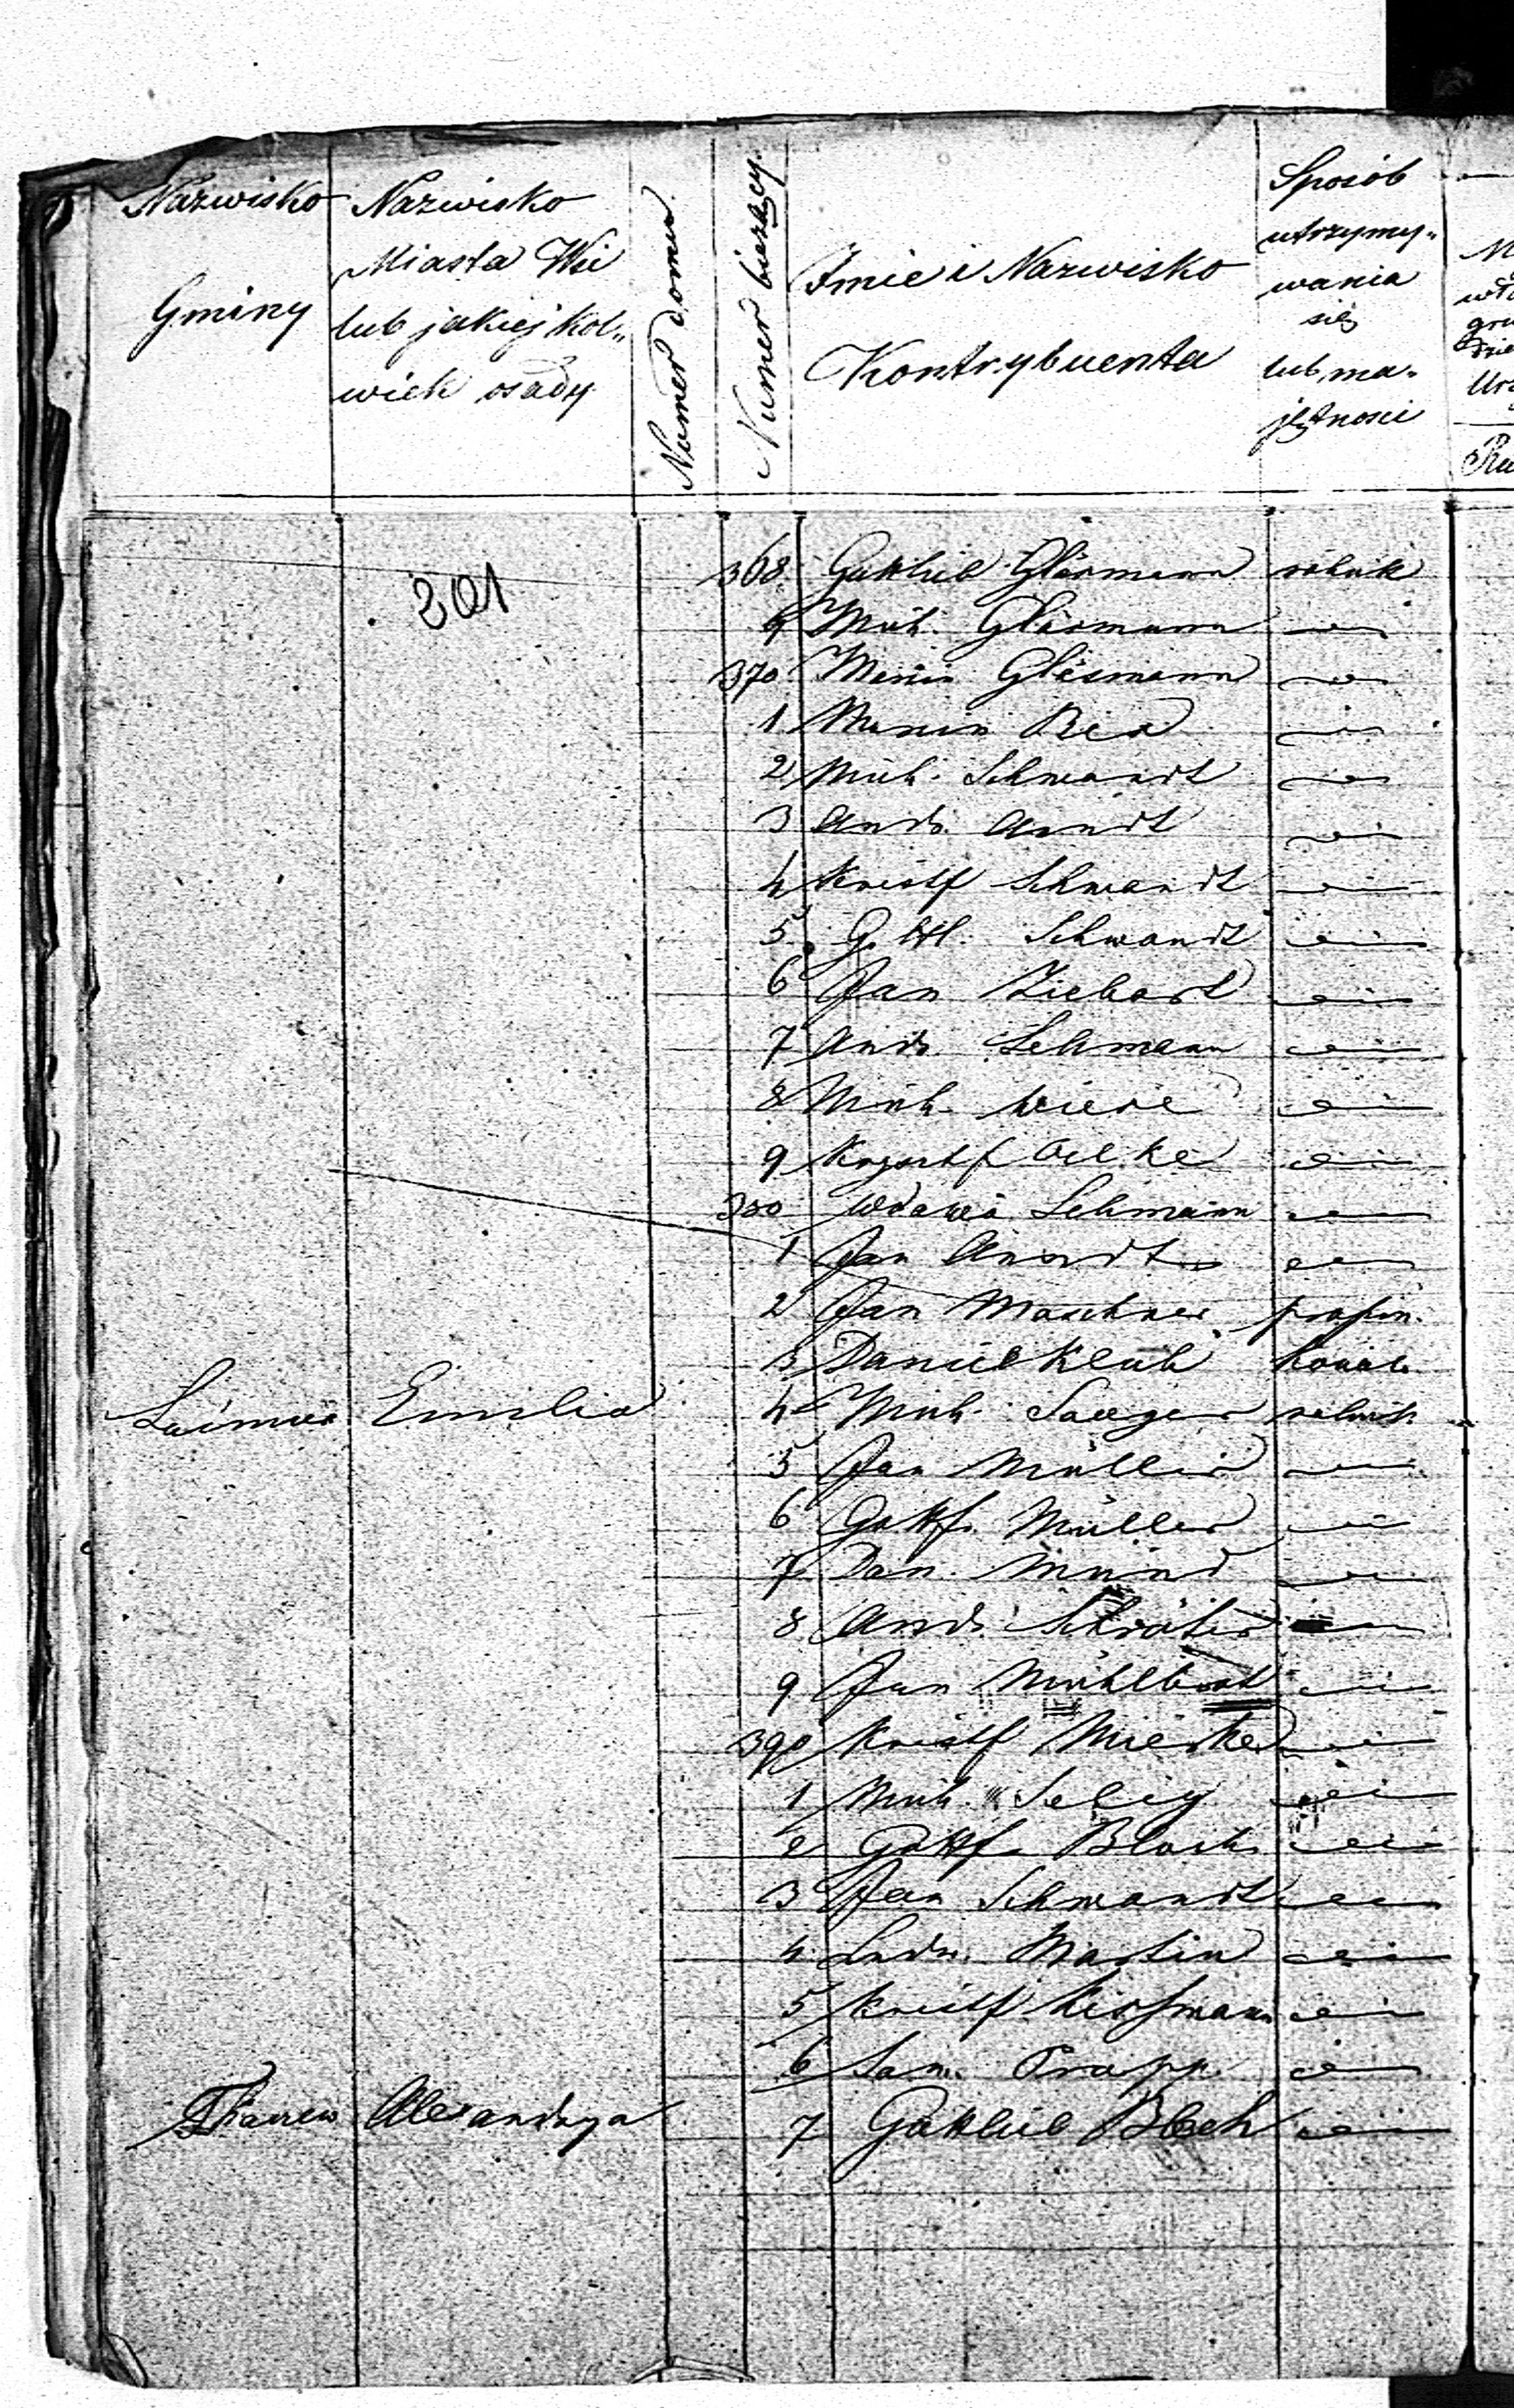 Nazwisko
Gminy
Nazwisko
Miasta Wsi
lub jakiej kol„
wiek osady
Numer domu
Numer bieżący.
Imie i Nazwisko
Kontrybuenta
Sposób
utrzymy„
wania
się
lub ma„
jętności
201
368 Gottlieb Gläsmann rolnik
9 Mich. Gläsmann
370 Marcin Gläsmann
1 Marcin
2 Mich. Schwandt
3 Andr. Arndt
4 Kristf Schwandt
5 Gottl. Schwandt
6 Jan Ziebart
7 Andr. Lehmann
8 Mich. Wiese
9 Krysztf Oelke
380 Wdowa Lehmann
1 Jan Arndt
2 Jan Maschner propin.
3 Daniel Kluk kowal
Emilia 4 Mich. Saeger rolnik
5 Jan Müller
6 Gottf. Müller
7 Dan. Mund
8 Andr. Schröter
9 Jan
390 Kristf Mierke
1 Mich. Selig
2 Gottf. Block
3 Jan Schwandt
4 Ludw. Martin
5 Kristf
6 Sam. Trapp
Alexandrya 7 Gottlieb Blech